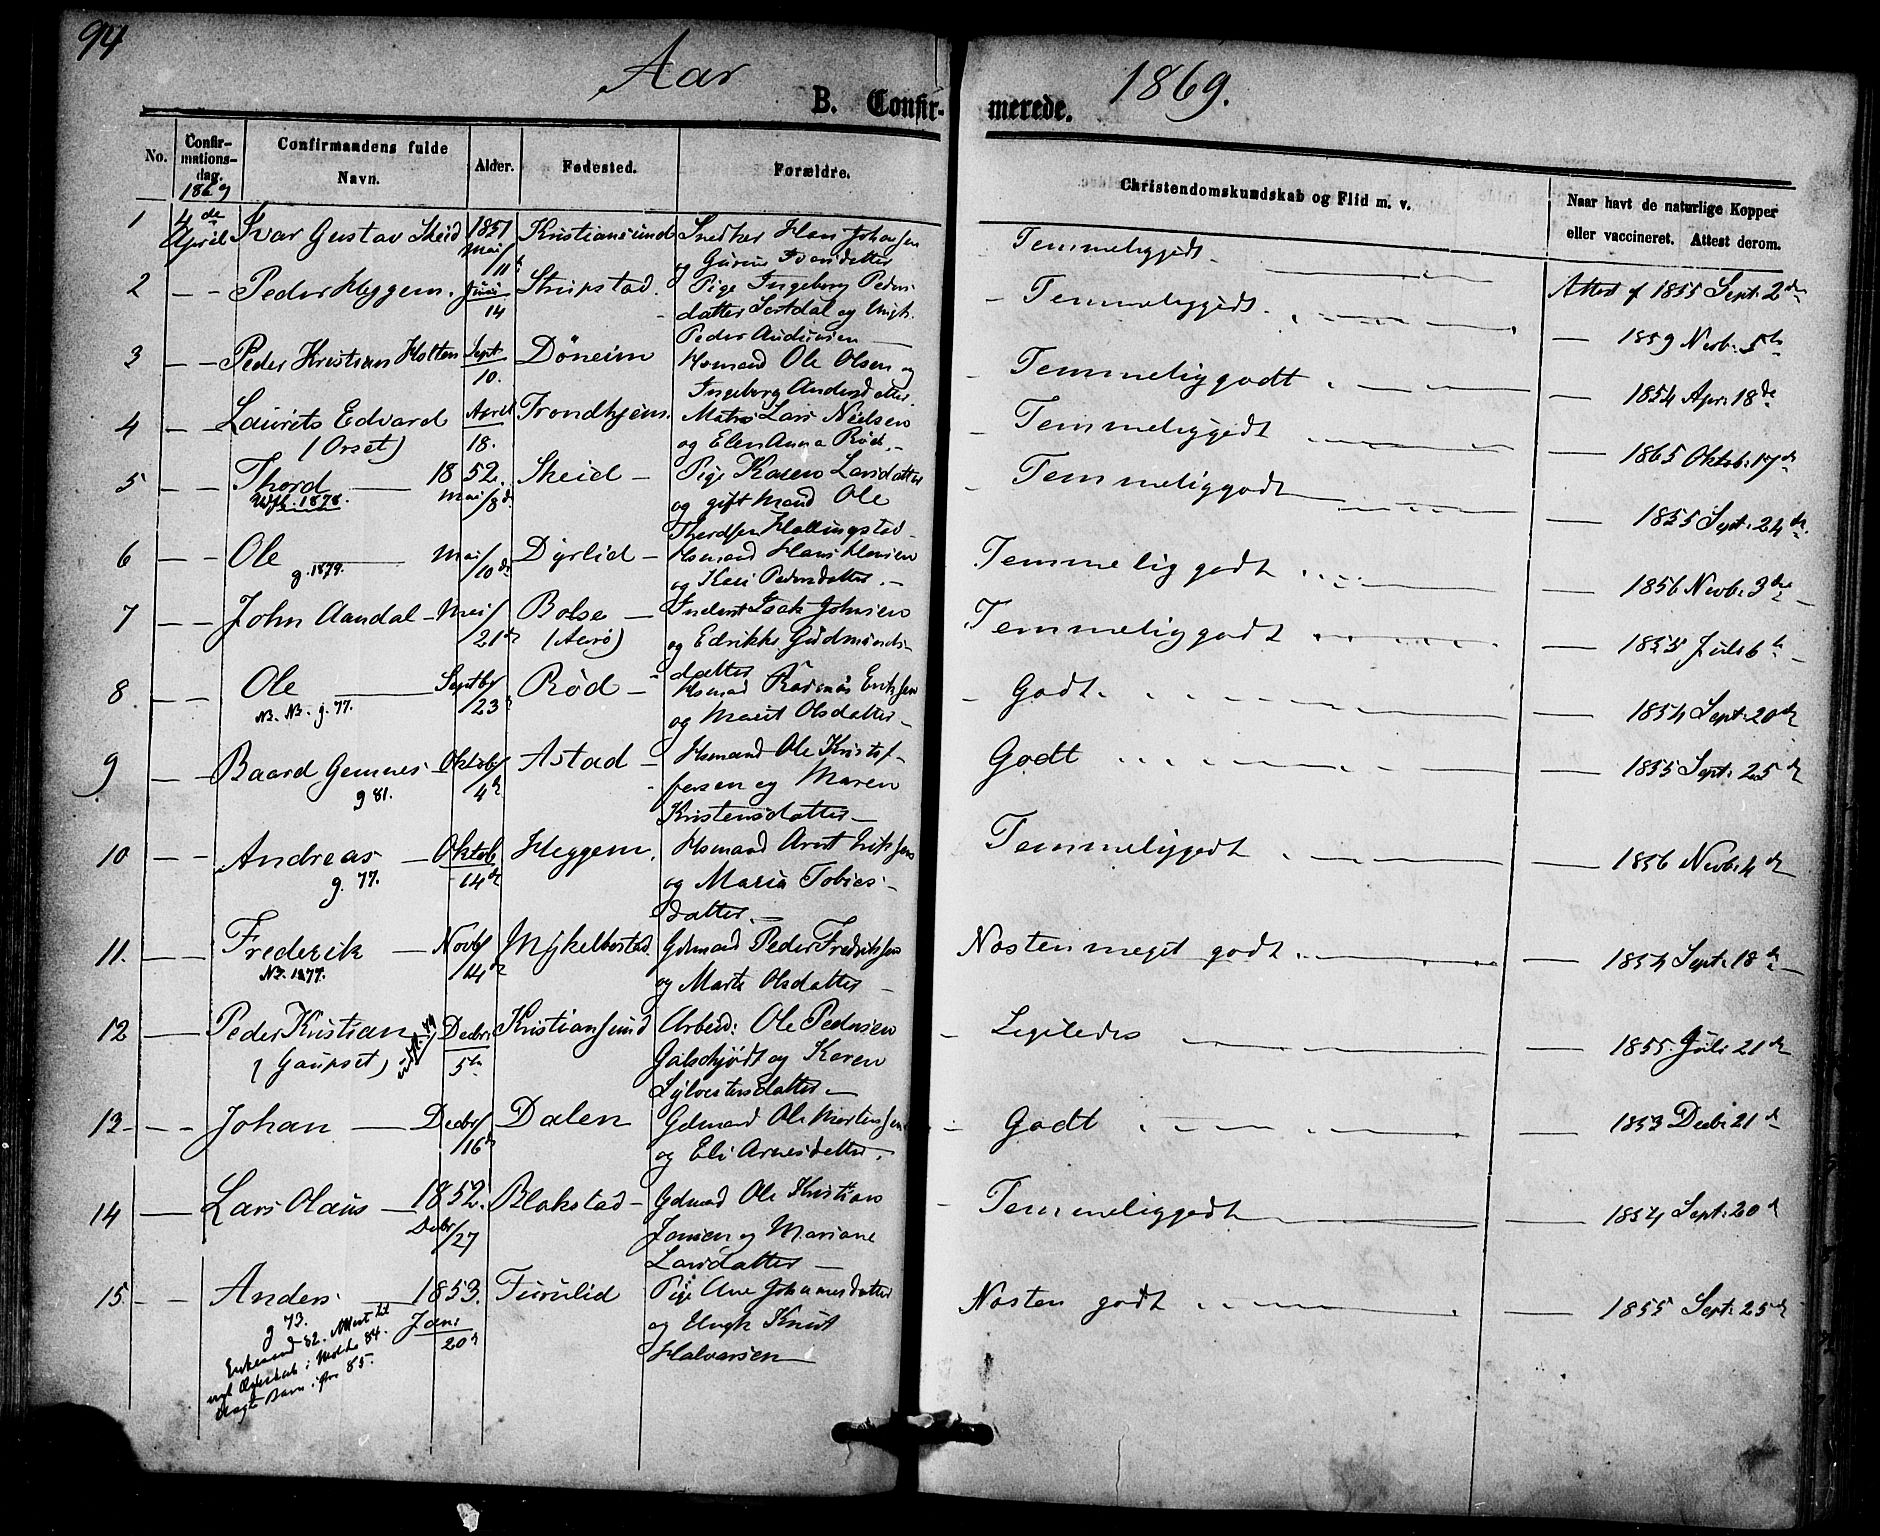 94
Aar 1869.
B. Confirmerede.
No. Confirmationsdag. 1869 Confirmandens fulde Navn. Alder. Fødested. Forældre. Christendomskundskab og Flid m. v. Naar havt de naturlige Kopper eller vaccineret. Attest derom.
1 4de April Ivar Gustav Skeid 1851 Mai/11 Kristiansund Snedker Hans Johansen
og Gurine Iversdatter Temmeliggodt Attest af 1855 Sept. 2den
2 — — Peder Heggem. Juni 14 Pige Ingeborg Peders-
datter og Ungk.
Peder Andersen Temmeliggodt. — 1859 Novb. 5te
3 — — Peder Kristian Holten Sept 10. Døneim Hsmand Ole Olsen og
Ingeborg Andersdatter. Temmeliggodt — 1854 Apr. 18de
4 — — Laurits Edvard
(Orset) April 18. Trondhjem. Matros Lars Nielsen
og Elen Anna Rød. — Temmeliggodt — 1865 Oktob. 17de
5 — — Thord
Utfl. 1878. 1852. Mai/8de Skeid — Pige Karen Larsdatter
og gift Mand Ole
Thordsen Hallingstad — Temmeliggodt — 1855 Sept. 24de
6 — — Ole
g. 1879. Mai/10de Dyrlid — Hsmand Hans Hansen
og Kari Pedersdatter. — Temmeliggodt — 1856 Novb. 3die
7 — — John Aandal — Mai/21de Bolsø —
(Aarø) Inderst Isak Johnsen
og Edrikke Gudmunds-
datter Temmeliggodt — 1853 Juli 6te
8 — — Ole
NB. NB. g. 77. Septbr/23de Rød — Hsmand Rasmus Eriksen
og Marit Olsdatter — Godt. — 1854 Sept. 20de
9 — — Baard Gemnes —
g 81. Oktobr/4de Astad — Hsmand Ole Kristof-
fersen og Maren
Kristensdatter — Godt — 1855 Sept. 25de
10 — — Andreas —
g. 77. Oktob 14de Heggem. Hsmand Arnt Eriksen
og Maria Tobias-
datter. — Temmeliggodt — 1856 Novb. 4de
11. — — Frederik —
NB. 1877. Novb/14de Myklebostad. Gdmand Peder Fredriksen
og Marte Olsdatter — Næsten meget godt — 1854 Sept. 18de
12 — Peder Kristian
(Gaupset) Decbr. 5te Kristiansund Arbeid: Ole Pedersen
Galschjødt og Karen
Sylvestersdatter — Ligeledes — 1855 Juli 21de
13 — — Johan — Decbr/16de Dalen Gdmand Ole Mortensen
og Eli Arnesdatter. Godt — 1853 Decb. 21de
14 — Lars Olaus — 1852. Decbr/27 Blakstad — Gdmand Ole Kristian
Jansen og Mariane
Larsdatter — Temmeliggodt — 1854 Sept. 20de
15 — — Anders —
g 73.
Enkemand 82. Attest til
nyt Ægteskab i Molde 84.
Barn i 85. 1853. Jan. 20de Furulid Pige Ane Johannesdatter
og Ungk Knut
Halvorsen — Næsten godt — 1855 Sept. 25de